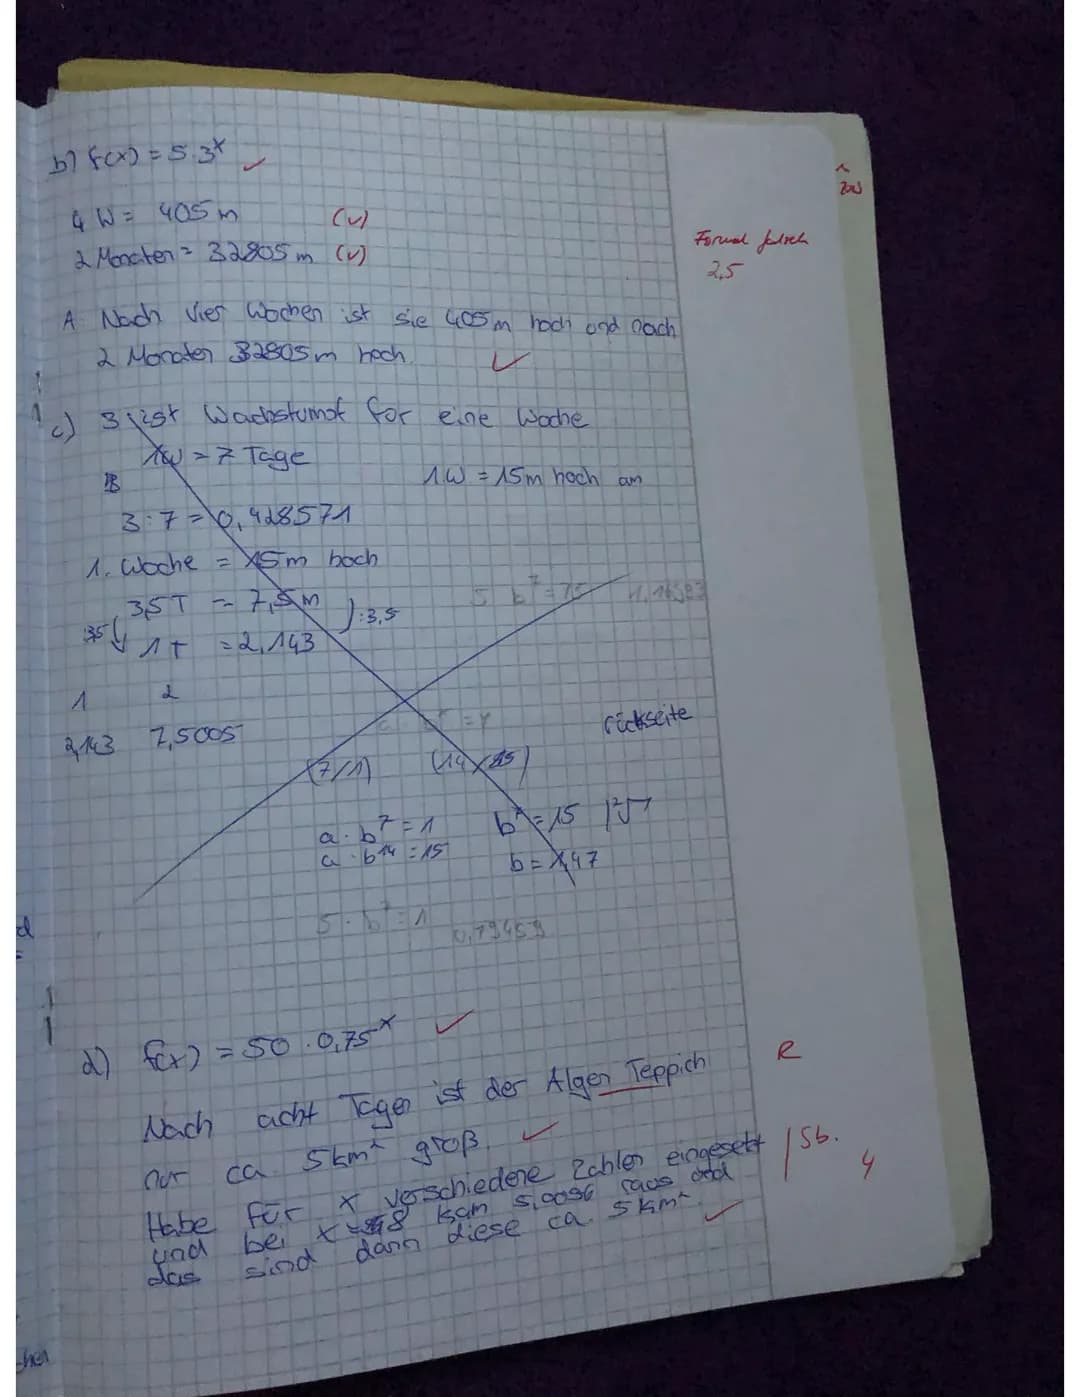 b) f(x) = 5·3^x ✓
4 W = 405 m (✓)
2 Monaten = 32805 m (✓)
Formal falsch
2,5
A Nach vier Wochen ist sie 405 m hoch und nach
2 Monaten 32805 m hoch. ✓
c) 3 ist Wachstumsf für eine Woche
1W = 7 Tage
1.W = 15m hoch am
3:7 = 0,428571
1. Woche = 15m hoch
3,5T = 7,5m
:3,5
1T = 2,143
:3,5
5 · b^7 = 15
1 2
2,143 7,5005
rückseite
(7/1) (14/15)
a · b^7 = 1
b^7 = 15
a · b^14 = 15
b = 1,47
5 · b^7 = 1
0,79459
d) f(x) = 50 · 0,75^x ✓
Nach acht Tagen ist der Algen Teppich
R
nur ca. 5km² groß. ✓
Habe für x verschiedene Zahlen eingesetzt
/Sb.
4
und bei x = 8 kam 5,0056 raus und
das sind dann diese ca. 5 km². ✓